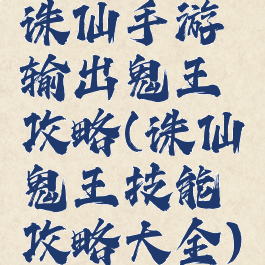 诛仙手游
输出鬼王
攻略(诛仙
鬼王技能
攻略大全)